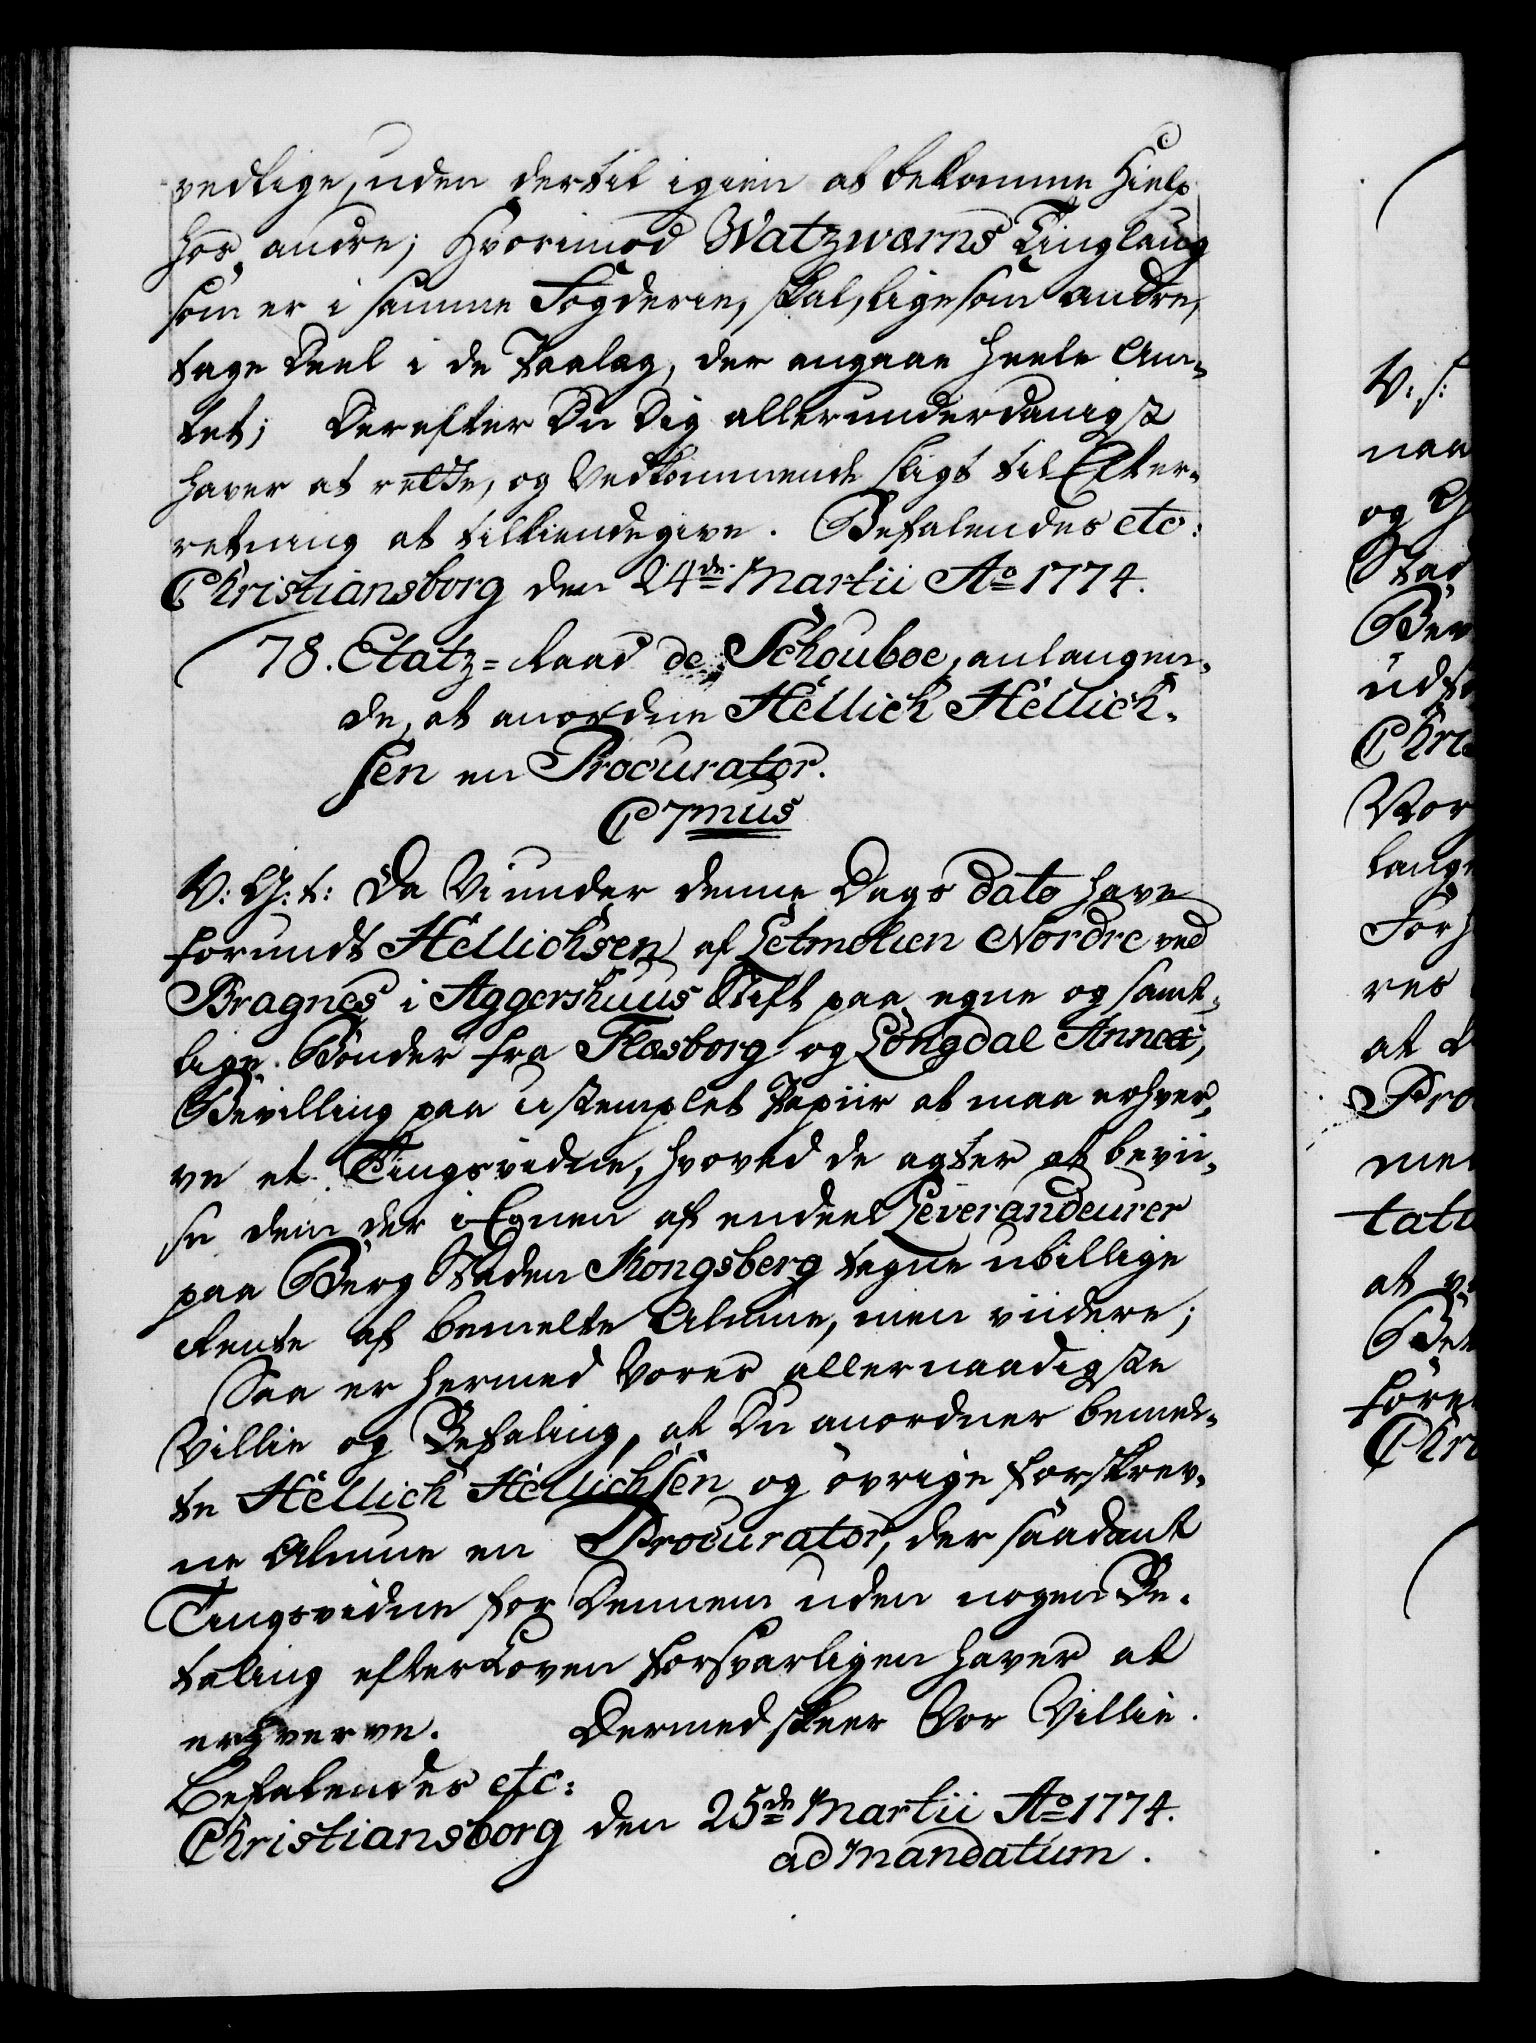 vedlige, uden dertil igien at bekomme Hielp
hos andre; Hvorimod Watzwærns Tinglaug
som er i samme Fogderie, skal, ligesom andre,
tage Deel i de Paalæg, der angaae heele Am-
tet; Derefter Du Dig allerunderdanigst
haver at rette, og Vedkommende sligt til Efter-
retning at tilkiendegive. Befalendes etc:
Christiansborg den 24de Martii Ao 1774.
78. Etatz-Raad de Schouboe, anlangen-
de, at anordne Hellich Hellich-
sen en Procurator.
C 7mus
V: G: t: Da Vi under denne Dags dato have
forundt Hellichsen af Letmolien Nordre ved
Bragnes i Aggershuus Stift paa egne og samt-
lige Bønder fra Flesborg og Longdal Annex,
Bevilling paa ustemplet Papiir at maa erhver-
ve et Tingsvidne, hvoved de agter at bevii-
se den der i Egnen af endeel Leverandeurer
paa Berg Staden Kongsberg tagne ubillige
Rente af bemelte Almue, men viidere;
Saa er hermed Vores allernaadigste
Villie og Befaling, at Du anordner bemel-
te Hellich Hellichsen og øvrige forskrev-
ne Almue en Procurator, der saadant
Tingsvidne for Dennem uden nogen Be-
taling efter Loven forsvarligen haver at
erhverve. Dermed skeer Vor Villie.
Befalendes etc:
Christiansborg den 25de Martii Ao 1774.
ad Mandatum.
V: S:
naa
og
Stad
Bev
udst
Chri
Vor
lange
Forh
res
at
Pro
me
tati
at
Be
føre
Chri